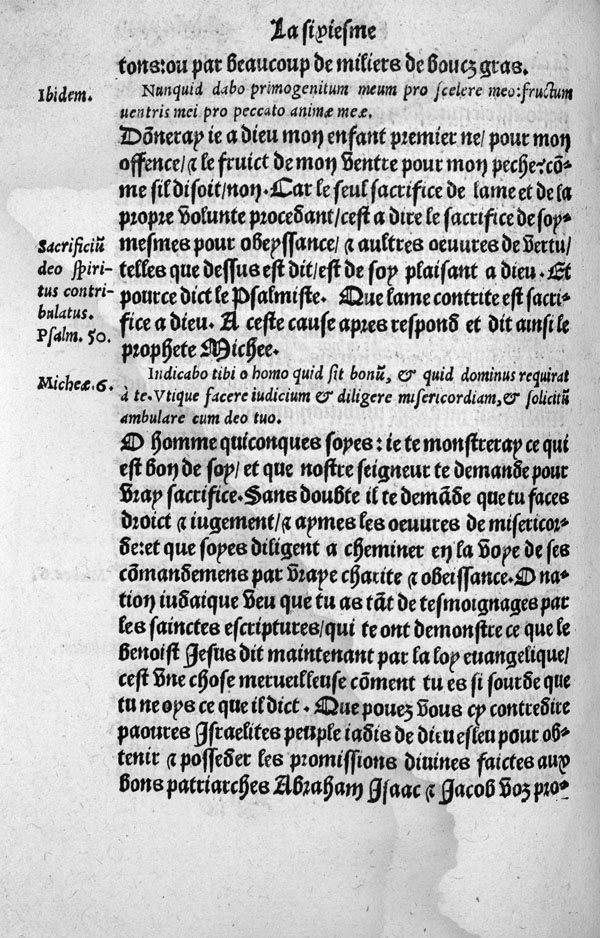 La sixiesme
tons:ou par beaucoup de miliers de boucz gras.
Ibidem.
Nunquid dabo primogenitum meum pro scelere meo:fructum
uentris mei pro peccato animæ meæ.
Dōneray ie a dieu mon enfant premier ne/ pour mon
offence/& le fruict de mon ventre pour mon peche:cō-
me sil disoit/non. Car le seul sacrifice de lame et de la
propre volunte procedant/cest a dire le sacrifice de soy-
mesmes pour obeyssance/& aultres oeuures de vertu/
telles que dessus est dit/est de soy plaisant a dieu. Et
pource dict le Psalmiste. Que lame contrite est sacri-
fice a dieu. A ceste cause apres respond et dit ainsi le
prophete Michee.
Sacrificiū
deo spiri-
tus contri-
bulatus.
Psalm. 50.
Micheæ.6.
Indicabo tibi o homo quid sit bonū, & quid dominus requirat
à te.Vtique facere iudicium & diligere misericordiam,& solicitū
ambulare cum deo tuo.
O homme quiconques soyes: ie te monstreray ce qui
est bon de soy/et que nostre seigneur te demande pour
vray sacrifice.Sans doubte il te demāde que tu faces
droict & iugement/& aymes les oeuures de misericor-
de:et que soyes diligent a cheminer en la voye de ses
cōmandemens par vraye charite & obeissance.O na-
tion iudaique veu que tu as tāt de tesmoignages par
les sainctes escriptures/qui te ont demonstre ce que le
benoist Jesus dit maintenant par la loy euangelique/
cest vne chose merueilleuse cōment tu es si sourde que
tu ne oys ce que il dict. Que pouez vous cy contredire
paoures Israelites peuple iadis de dieu esleu pour ob-
tenir & posseder les promissions diuines faictes aux
bons patriarches Abraham Isaac & Jacob voz pro-